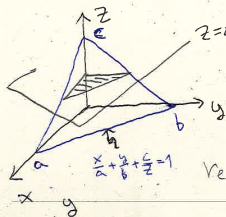 z
c
z=
y
b
a
x/a + y/b + c/z = 1
x
y